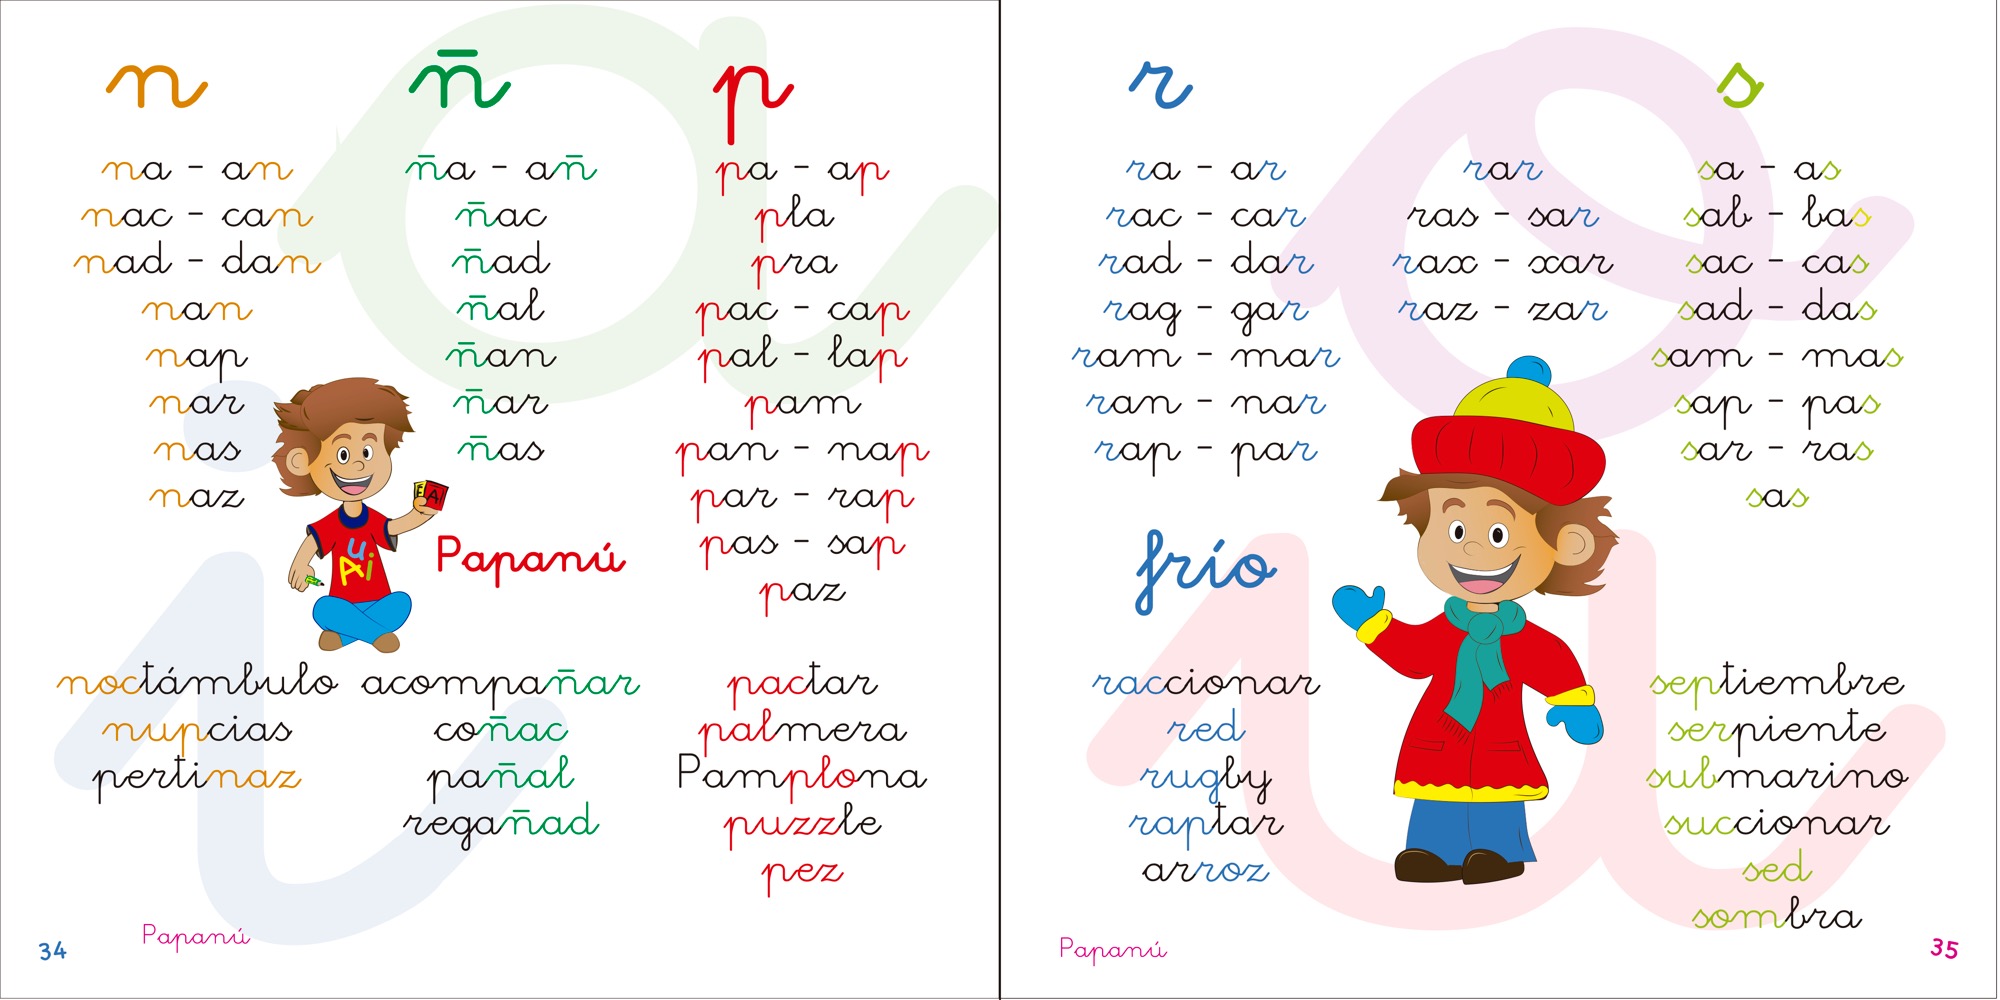 n
na - an
nac - can
nad - dan
nan
nap
nar
nas
naz
ñ
ña - añ
ñac
ñad
ñal
ñan
ñar
ñas
p
pa - ap
pla
pra
pac - cap
pal - lap
pam
pan - nap
par - rap
pas - sap
paz
E A
u
Ai
Papanú
noctámbulo
nupcias
pertinaz
acompañar
coñac
pañal
regañad
pactar
palmera
Pamplona
puzzle
pez
34
Papanú
r
ra - ar
rac - car
rad - dar
rag - gar
ram - mar
ran - nar
rap - par
rar
ras - sar
rax - xar
raz - zar
s
sa - as
sab - bas
sac - cas
sad - das
sam - mas
sap - pas
sar - ras
sas
frío
raccionar
red
rugby
raptar
arroz
septiembre
serpiente
submarino
succionar
sed
sombra
Papanú
35
a
i
o
u